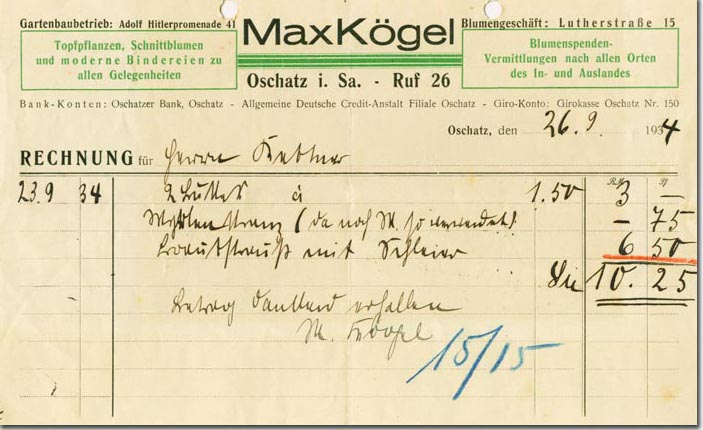 Gartenbaubetrieb: Adolf Hitlerpromenade 41
Topfpflanzen, Schnittblumen
und moderne Bindereien zu
allen Gelegenheiten
MaxKögel
Oschatz i. Sa. - Ruf 26
Blumengeschäft: Lutherstraße 15
Blumenspenden-
Vermittlungen nach allen Orten
des In- und Auslandes
Bank-Konten: Oschatzer Bank, Oschatz - Allgemeine Deutsche Credit-Anstalt Filiale Oschatz - Giro-Konto: Girokasse Oschatz Nr. 150
Oschatz, den 26. 9. 1934
RECHNUNG für Herrn
23.9 34 2 à 1.50 3 —
(da noch M. so verwendet) — 75
Brautstrauß mit Schleier 6 50
10. 25
Betrag dankend erhalten
M. Kögel
15/15